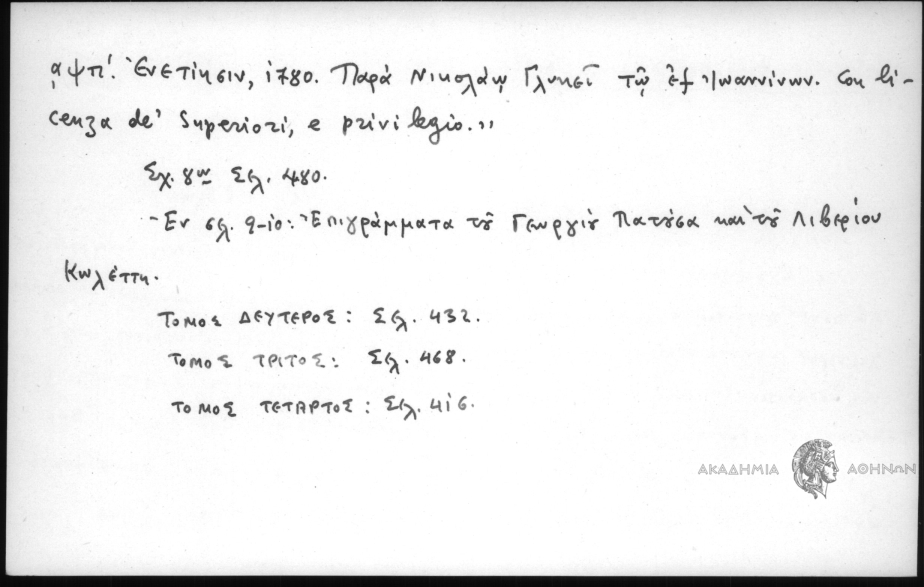 ͵αψπʹ. Ἐνετίησιν, 1780. Παρὰ Νικολάῳ Γλυκεῖ τῷ ἐξ Ἰωαννίνων. Con li-
cenza de' Superiori, e privilegio.»
Σχ. 8ον Σελ. 480.
-Ἐν σελ. 9-10: Ἐπιγράμματα τοῦ Γεωργίου Πατούσα καὶ τοῦ Λιβερίου
Κωλέττη.
ΤΟΜΟΣ ΔΕΥΤΕΡΟΣ: Σελ. 432.
ΤΟΜΟΣ ΤΡΙΤΟΣ: Σελ. 468.
ΤΟΜΟΣ ΤΕΤΑΡΤΟΣ: Σελ. 416.
ΑΚΑΔΗΜΙΑ ΑΘΗΝΩΝ